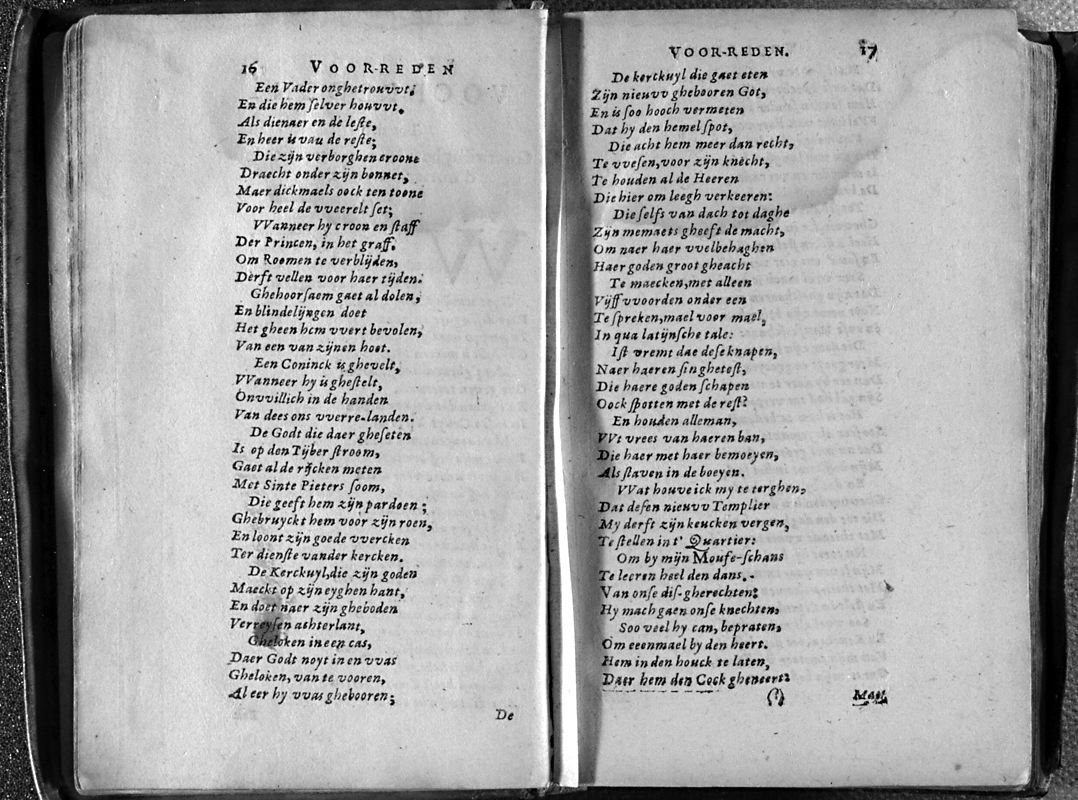 16 VOOR-REDEN
Een Vader onghetrouvvt;
En die hem ſelver houvvt,
Als dienaer en de leſte,
En heer is vau de reſte;
Die zijn verborghen croone
Draecht onder zijn bonnet,
Maer dickmaels oock ten toone
Voor heel de vveerelt ſet;
VVanneer hy croon en ſtaff
Der Princen, in het graff,
Om Roomen te verblijden,
Derft vellen voor haer tijden:
Ghehoorſaem gaet al dolen,
En blindelijngen doet
Het gheen hem vvert bevolen,
Van een van zijnen hoet.
Een Coninck is ghevelt,
VVanneer hy is gheſtelt,
Onvvillich in de handen
Van dees ons vverre-landen.
De Godt die daer gheſeten
Is op den Tijber ſtroom,
Gaet al de rijcken meten
Met Sinte Pieters ſoom,
Die geeft hem zijn pardoen;
Ghebruyckt hem voor zijn roen,
En loont zijn goede vvercken
Ter dienſte vander kercken.
De Kerckuyl, die zijn goden
Maeckt op zijn eyghen hant,
En doet naer zijn gheboden
Verreyſen achterlant,
Gheloken in een cas,
Daer Godt noyt in en vvas
Gheloken, van te vooren,
Al eer hy vvas ghebooren;
De
VOOR-REDEN. 17
De kerckuyl die gaet eten
Zijn nieuvv ghebooren Got,
En is ſoo hooch vermeten
Dat hy den hemel ſpot,
Die acht hem meer dan recht,
Te vveſen, voor zijn knecht,
Te houden al de Heeren
Die hier om leegh verkeeren:
Die ſelfs van dach tot daghe
Zijn memaets gheeft de macht,
Om naer haer vvelbehaghen
Haer goden groot gheacht
Te maecken, met alleen
Vijff vvoorden onder een
Te ſpreken, mael voor mael,
In qua latijnſche tale:
Iſt vremt dae deſe knapen,
Naer haeren ſin gheteſt,
Die haere goden ſchapen
Oock ſpotten met de reſt?
En houden alleman,
VVt vrees van haeren ban,
Die haer met haer bemoeyen,
Als ſlaven in de boeyen.
VVat houve ick my te terghen,
Dat deſen nieuvv Templier
My derft zijn keucken vergen,
Te ſtellen in t' Quartier:
Om by mijn Mouſe-ſchans
Te leeren heel den dans.
Van onſe diſ-gherechten:
Hy mach gaen onſe knechten,
Soo veel hy can, bepraten,
Om eeenmael by den heert.
Hem in den houck te laten,
Daer hem den Cock gheneert: